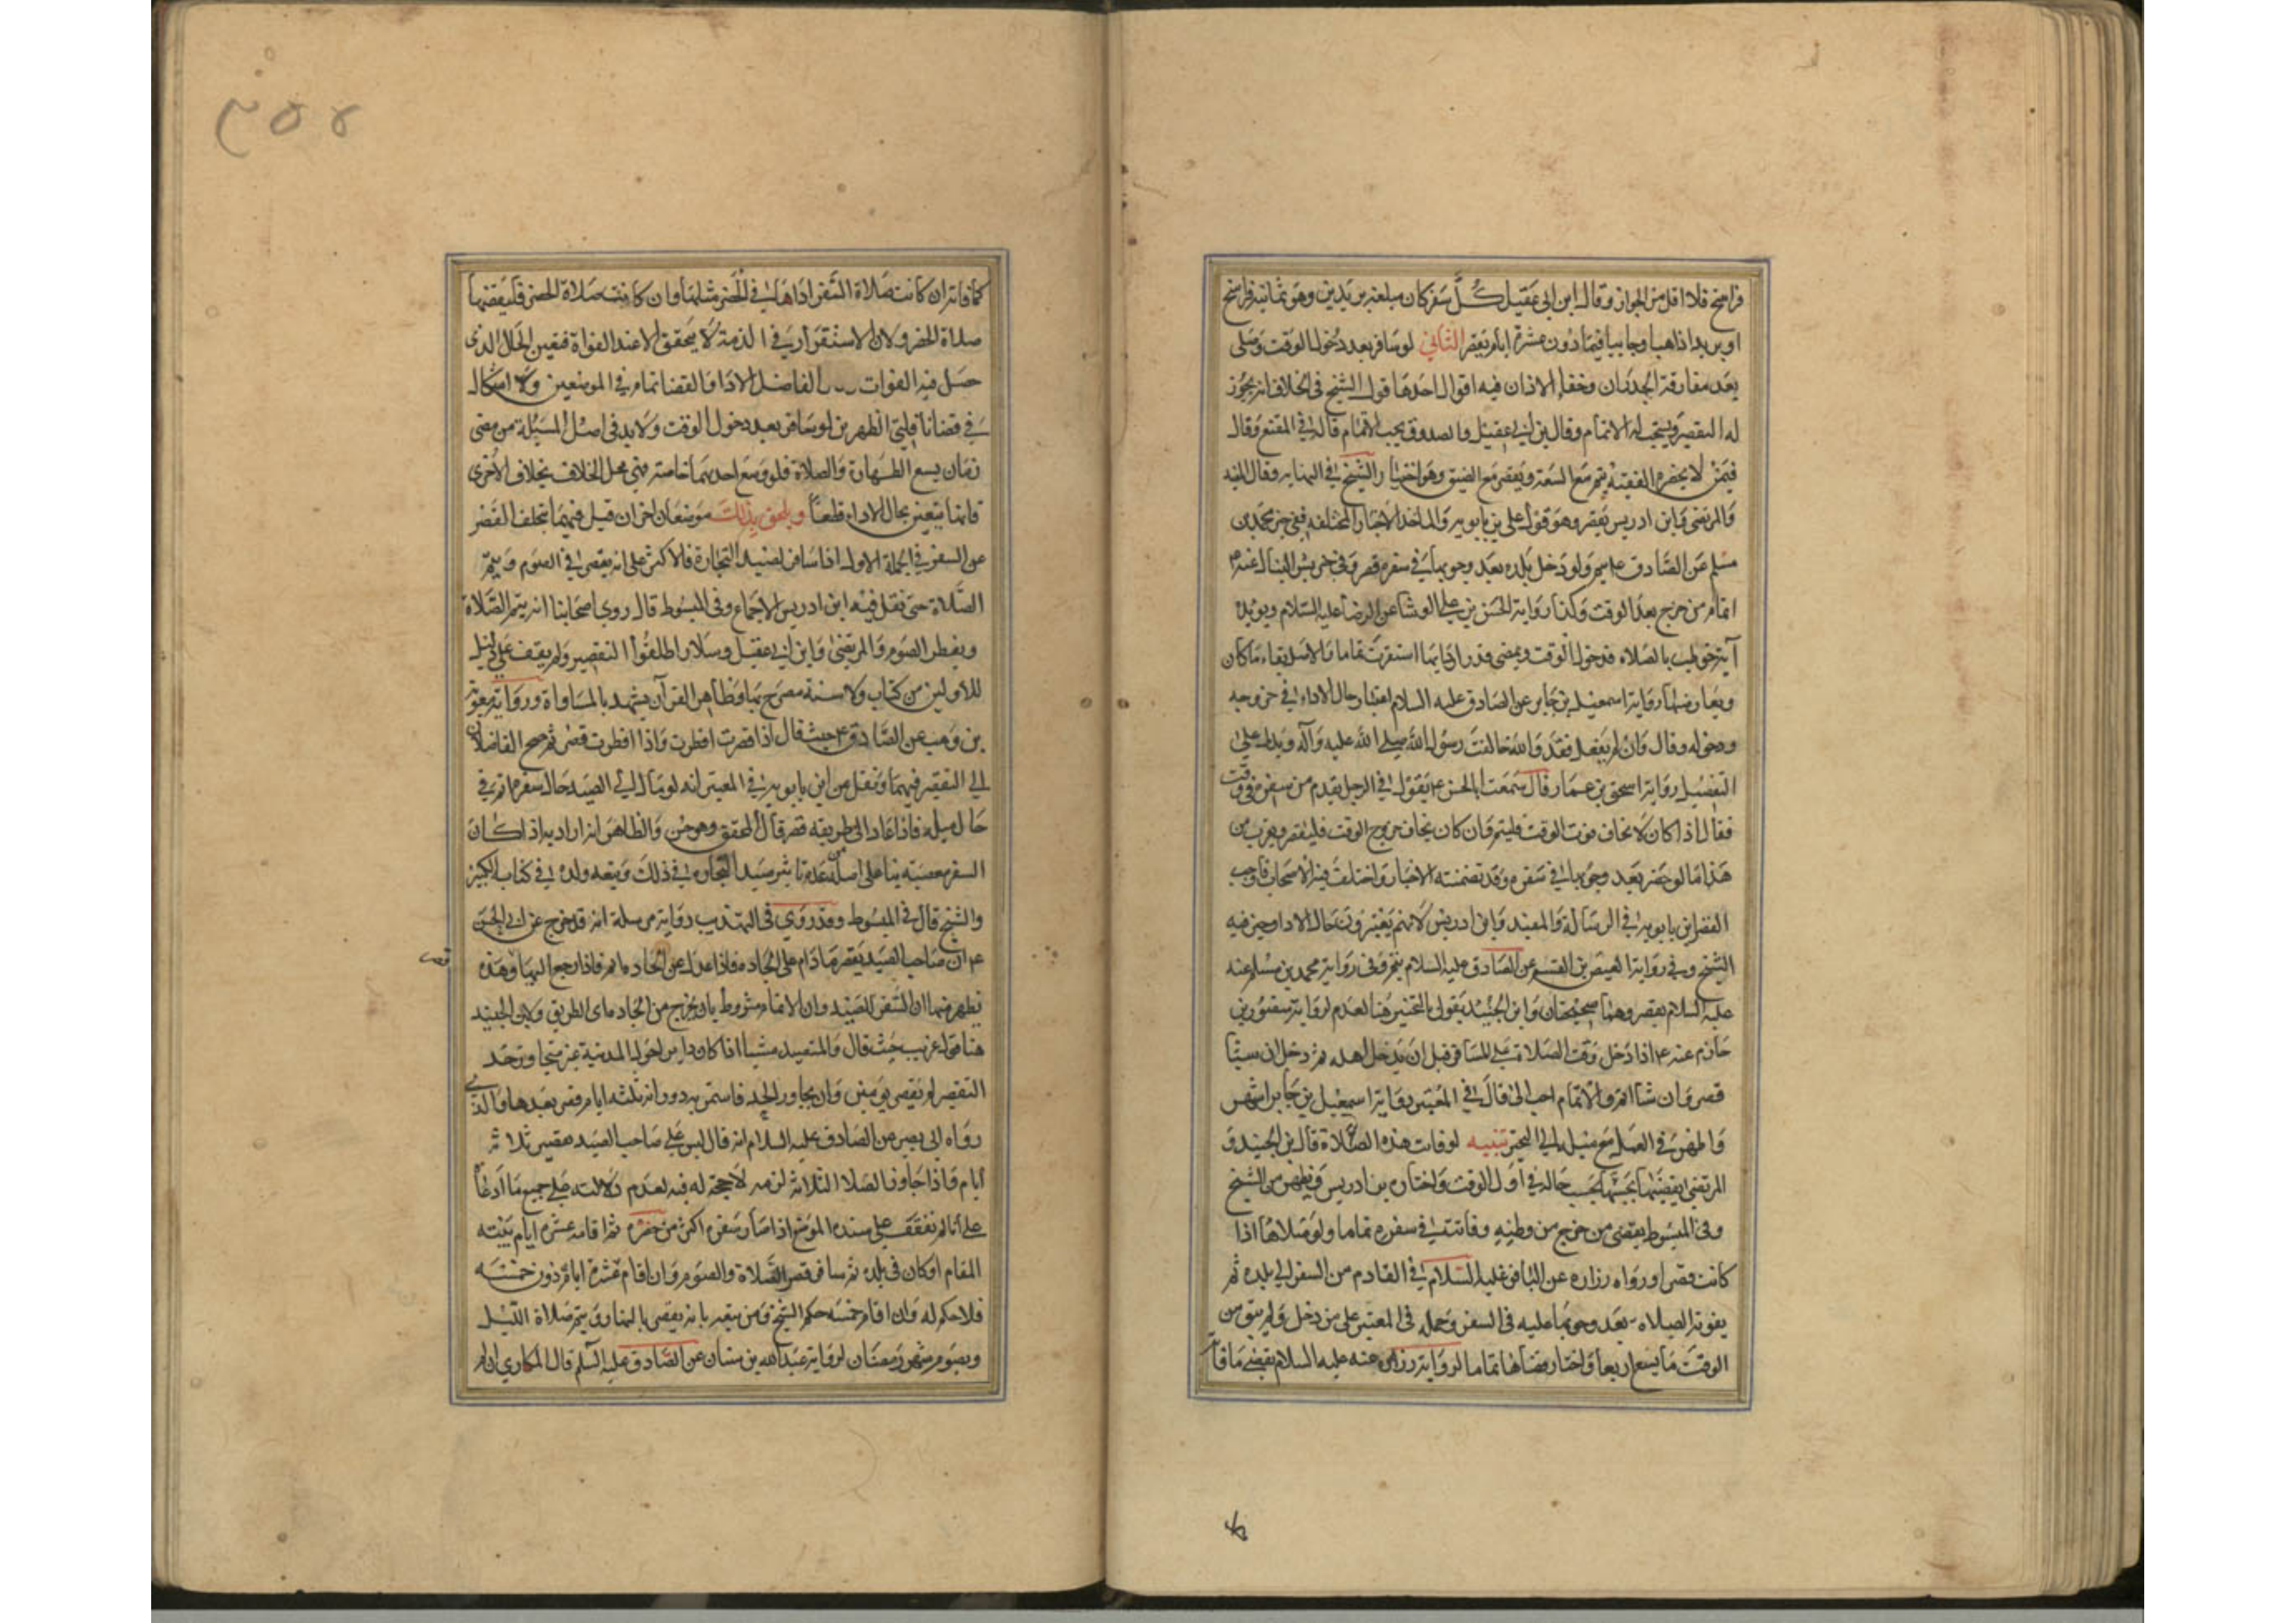 فراسخ فلا اقل من الجواز وقال ابن ابي عقيل كل سفر كان مبلغه بريدين وهو ثمانية فراسخ
او بريدا ذاهبا وجايبا فيما دون عشرة ايام يقصر الثاني لو سافر بعد دخول الوقت وصلى
بعد مفارقة الجدران وخفاء الاذان فيه اقوال احدها قول الشيخ في الخلاف انه يجوز
له التقصير ويستحب له الاتمام وقال بن ابي عقيل والصدوق يجب الاتمام قاله في المقنع وقال
فيمن لا يحضره الفقيه يتم مع السعة ويقصر مع الضيق وهو اختيار الشيخ في النهاية وقال المفيد
والمرتضى وابن ادريس يقصر وهو قول علي بن بابويه والماخذ الاخبار المختلفة ففي خبر محمد بن
مسلم عن الصادق ولو دخل بلده بعد وجوبها في سفره قصر وفي خبر بشير النبال عنه
اتمام من خرج بعد الوقت وكذا رواية الحسن بن علي الوشا عن الرضا عليه السلام ويؤيده
انه خوطب بالصلاه فدخول الوقت وبمضى قدر ادايها استقرت تماما والاصل بقاء ما كان
ويعارضها رواية اسمعيل بن جابر عن الصادق عليه السلام اعتبار حال الاداء في خروجه
ودخوله وقال وان لم يفعل فقد والله خالفت رسول الله صلى الله عليه وآله ويدل على
التفصيل رواية اسحق بن عمار قال سمعت ابا الحسن ع يقول في الرجل يقدم من سفره في وقت
فقال اذا كان لا يخاف فوت الوقت فليتم وان كان يخاف خروج الوقت فليقصر ويقرب من
هذا ما لو حضر بعد وجوبها في سفره وقد تضمنته الاخبار واختلف فيه الاصحاب فاوجب
القصر ابن بابويه في الرسالة والمفيد وابن ادريس لانهم يعتبرون حال الاداء وخير فيه
الشيخ وفي رواية العيص بن القسم عن الصادق عليه السلام يتم وفي رواية محمد بن مسلم عنه
عليه السلام يقصر وهما صحيحتان وابن الجنيد يقول بالتخيير هنا لعدم لرواية منصور بن
حازم عنه ع اذا دخل وقت الصلاة على المسافر قبل ان يدخل اهله ثم دخل ان شا
قصر وان شا اتم والاتمام احب الى قال في المعتبر رواية اسمعيل بن جابر اشهر
واظهر في العمل مع ميله الى التخيير تنبيه لو فات هذه الصلاة قال بن الجنيد و
المرتضى يقضيها بحسب حاله في اول الوقت واختاره بن ادريس ويظهر من الشيخ
وفي المبسوط يقضى من خرج من وطنه وفاتته في سفره تماما ولو صلاها اذا
كانت قصرا ورواه زراره عن الباقر عليه السلام في القادم من السفر الى بلده ثم
يفوته الصلاه بعد وجوبها عليه في السفر وحمله في المعتبر على من دخل ولم يبق من
الوقت ما يسع اربعا واختار قضاها تماما لرواية زراره عنه عليه السلام يقضي ما فاته
كما فاته ان كانت صلاة السفر اداها في الحضر مثلها وان كانت صلاة الحضر فليقضها
صلاة الحضر ولان الاستقرار في الذمة لا يتحقق الا عند الفوات فتعين الحال الذى
حصل فيه الفوات الفاضل الادا والقضا تمام في الموضعين ولا اشكال
في قضا نافلتي الظهرين لو سافر بعد دخول الوقت ولا بد في اصل المسئلة من مضى
زمان يسع الطهارة والصلاة فلو وسع احديهما خاصة فهي محل الخلاف بخلاف الاخرى
فانها يتعين بحال الاداء قطعا ويلحق بذلك موضعان اخران قيل فيهما بتخلف القصر
عن السفر في الجملة الاول اذا سافر لصيد التجارة فالاكثر على انه يقصر في الصوم ويتم
الصلاة حتى نقل فيه ابن ادريس الاجماع وفي المبسوط قال روى اصحابنا انه يتم الصلاة
ويفطر الصوم والمرتضى وابن ابي عقيل وسلار اطلقوا التقصير ولم يقف على دليل
للاولين من كتاب ولا سنة مصرح بها وظاهر القرآن يشهد بالمساواة ورواية معوية
بن وهب عن الصادق ع حيث قال اذا قصرت افطرت واذا افطرت قصر ثم صح الفاضلان
الى التقصير فيهما ونقل عن ابن بابويه في المعتبر انه لو مال الى الصيد حال سفره اتم في
حال ميله فاذا عاد الى طريقه قصر قال المحقق وهو حسن والظاهر انه اراد به اذا كان
السفر معصية بنا على اصله من عدم تاثير صيد التجاره في ذلك وتبعه ولده في كتابه الكبير
والشيخ قال في المبسوط وقد روى في التهذيب رواية مرسلة انه قد خرج عن ابي الحسن
ع ان صاحب الصيد يقصر ما دام على الجاده فاذا عدل عن الجاده اتم فاذا رجع اليها وهذه
قصر
يظهر منها ان السفر للصيد وان الاتمام مشروط بان يخرج من الجاده اى الطريق ولابن الجنيد
هنا قول غريب حيث قال والمتصيد مشيا اذا كان دايرا حول المدينة غير متجاوز حد
التقصير لم يقصر يومين وان يجاوز الحد فاستمر به دورانه ثلثه ايام قصر بعدها والذي
رواه ابي بصير عن الصادق عليه السلام انه قال ليس على صاحب الصيد تقصير ثلاثة
ايام واذا جاوز الصلا الثلاثة لزمه لا حجة له فيه لعدم دلالته على جميع ما ادعا
على انا لم نقف على سنده الموضع اذا صار سفره اكثر من حضره ثم اقام عشرة ايام بنية
المقام او كان في بلده ثم سافر قصر الصلاة والصوم وان اقام عشرة ايام دون خمسة
فلا حكم له وان اقام خمسه حكم الشيخ ومن تبعه بانه يقصر بالنهار ويتم صلاة الليل
ويصوم شهر رمضان لرواية عبد الله بن سنان عن الصادق عليه السلم قال المكاري ان لم